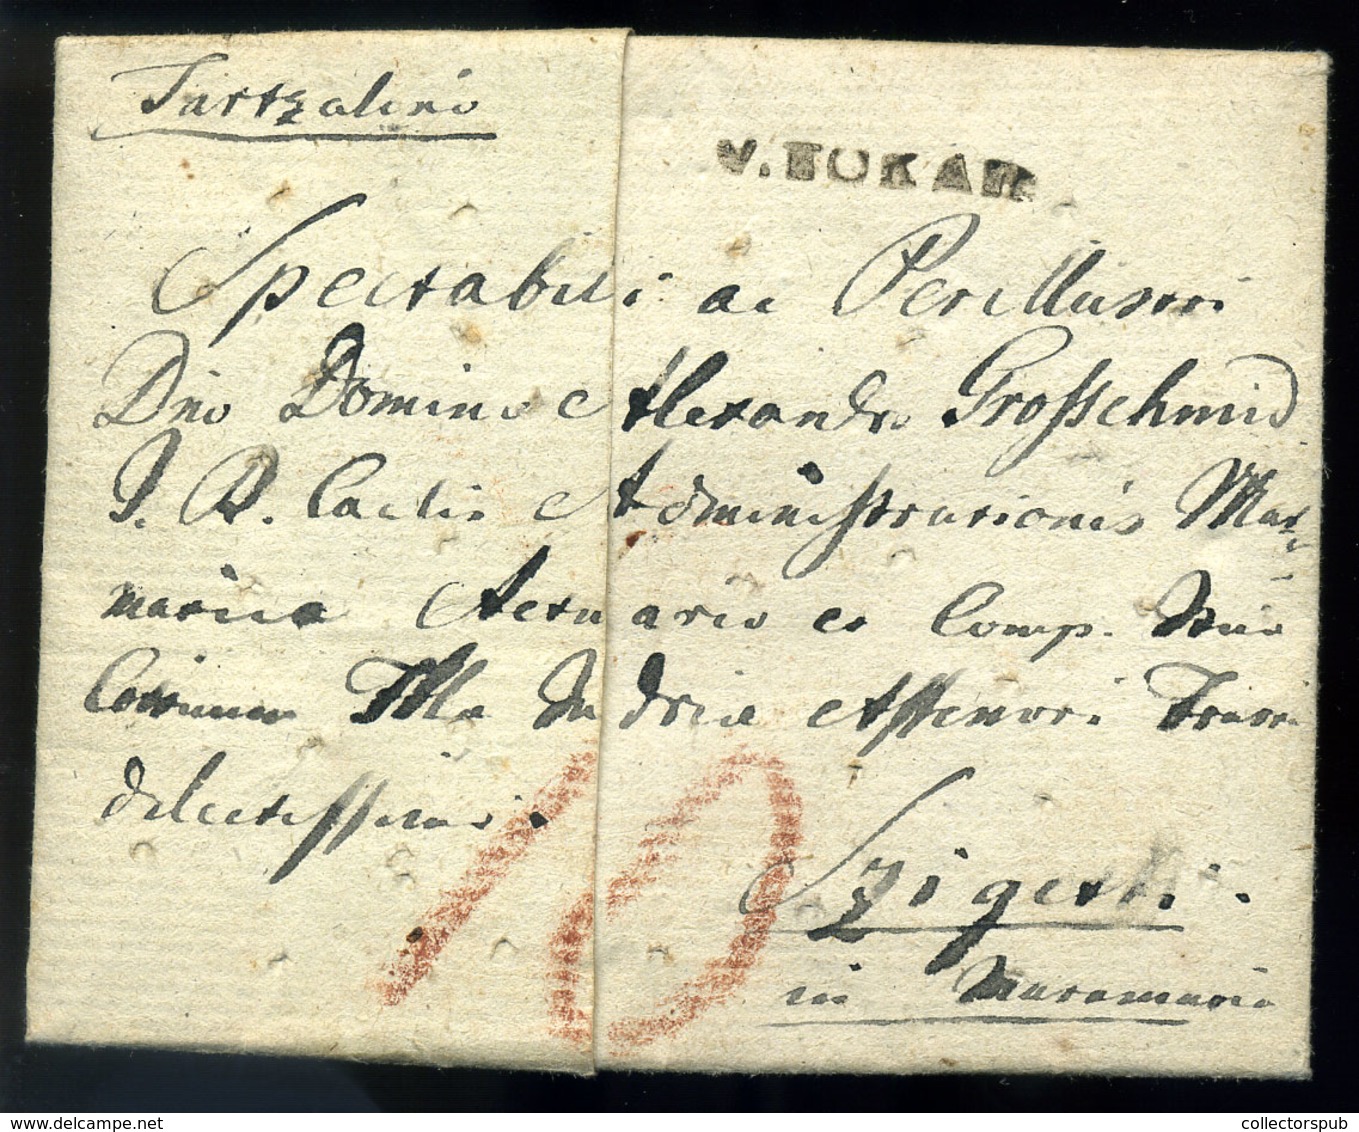 Tartzalino
V. TOKAI
Spectabili ac Perillustri
Dno Domino Alexandro Grosschmid
I. R. Cactis Administrationis Mar„
maticae Actuario et Comp.
Assessori
dilectissimo.
10
Szigeth.
in Maramaris
collectorspub